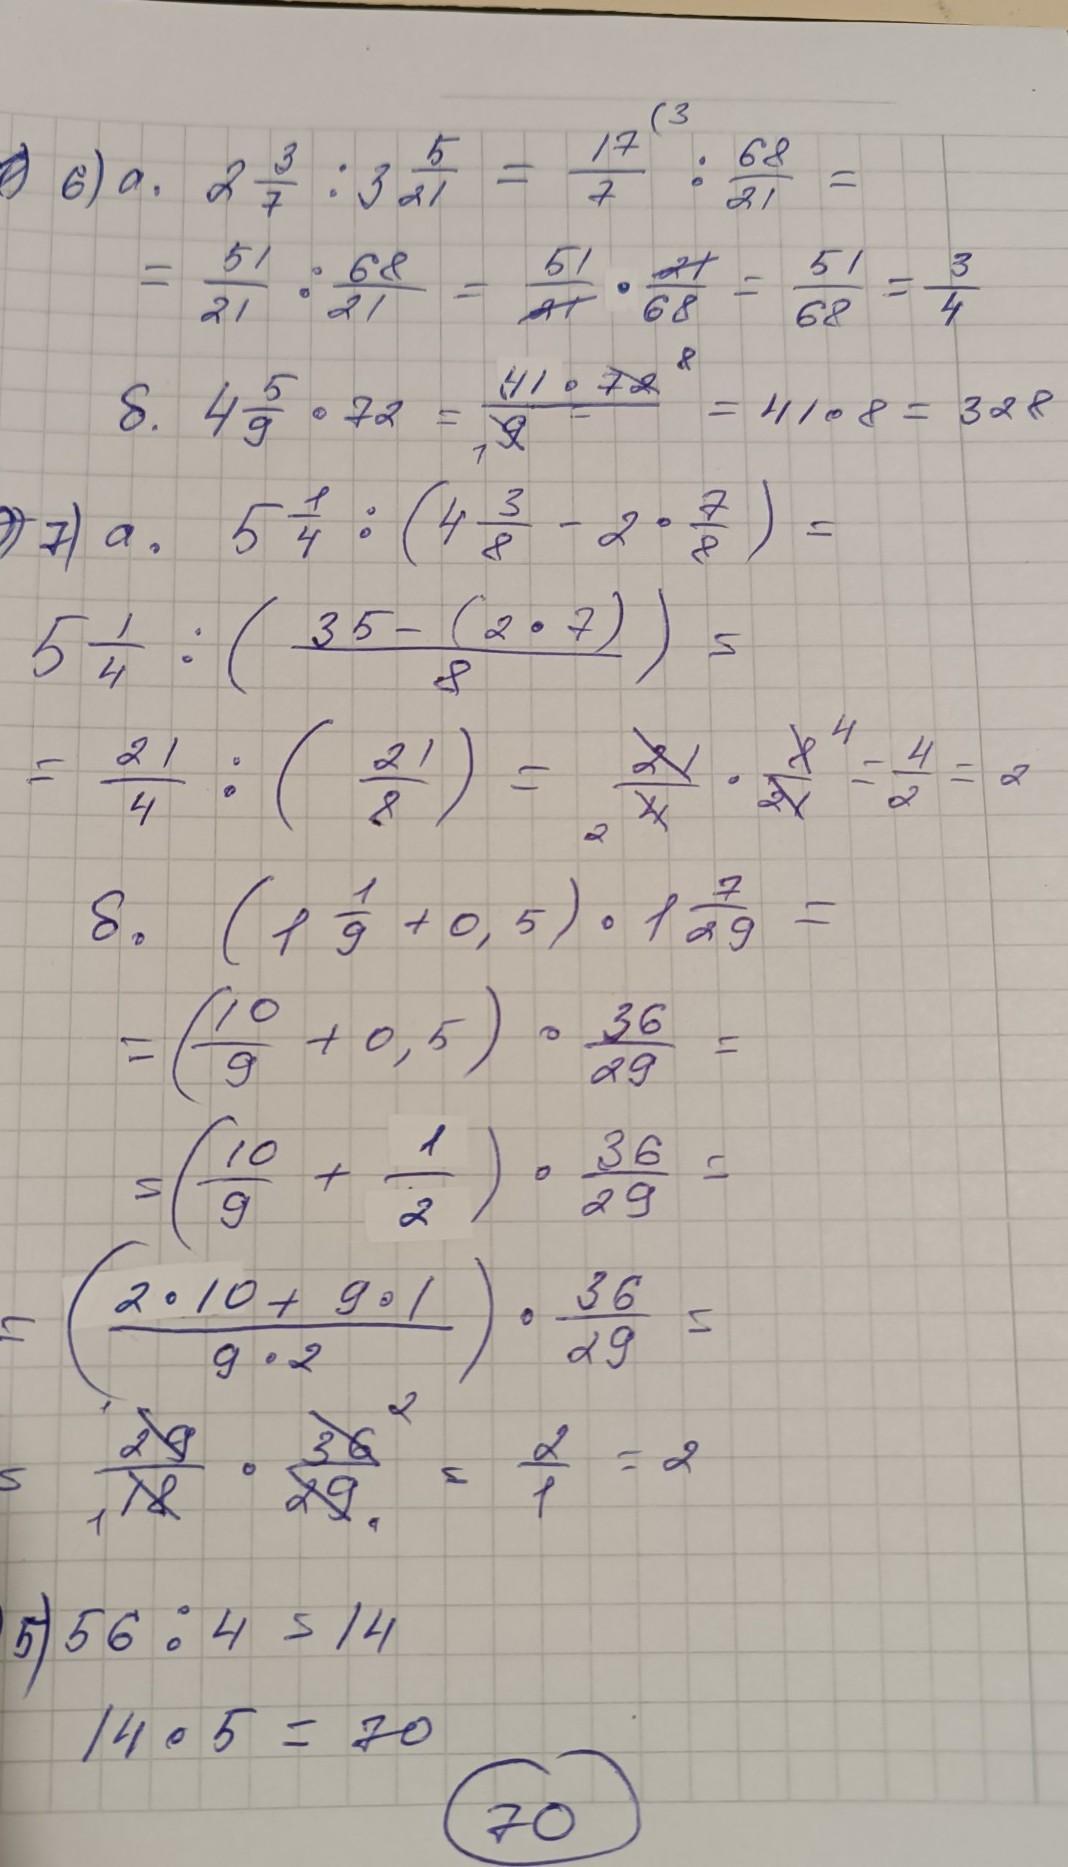 6) а. 2 3/7 : 3 5/21 = 17/7 (3 : 68/21 =
= 51/21 : 68/21 = 51/21 · 21/68 = 51/68 = 3/4
б. 4 5/9 · 72 = 41 · 72 8 / 9 1 = 41 · 8 = 328
7) а. 5 1/4 : (4 3/8 - 2 · 7/8) =
5 1/4 : ((35 - (2 · 7))/8) =
= 21/4 : (21/8) = 21/4 2 · 8 4/21 = 4/2 = 2
б. (1 1/9 + 0,5) · 1 7/29 =
= (10/9 + 0,5) · 36/29 =
= (10/9 + 1/2) · 36/29 =
= ((2 · 10 + 9 · 1)/(9 · 2)) · 36/29 =
= 29/18 1 · 36 2/29 = 2/1 = 2
5) 56 : 4 = 14
14 · 5 = 70
70